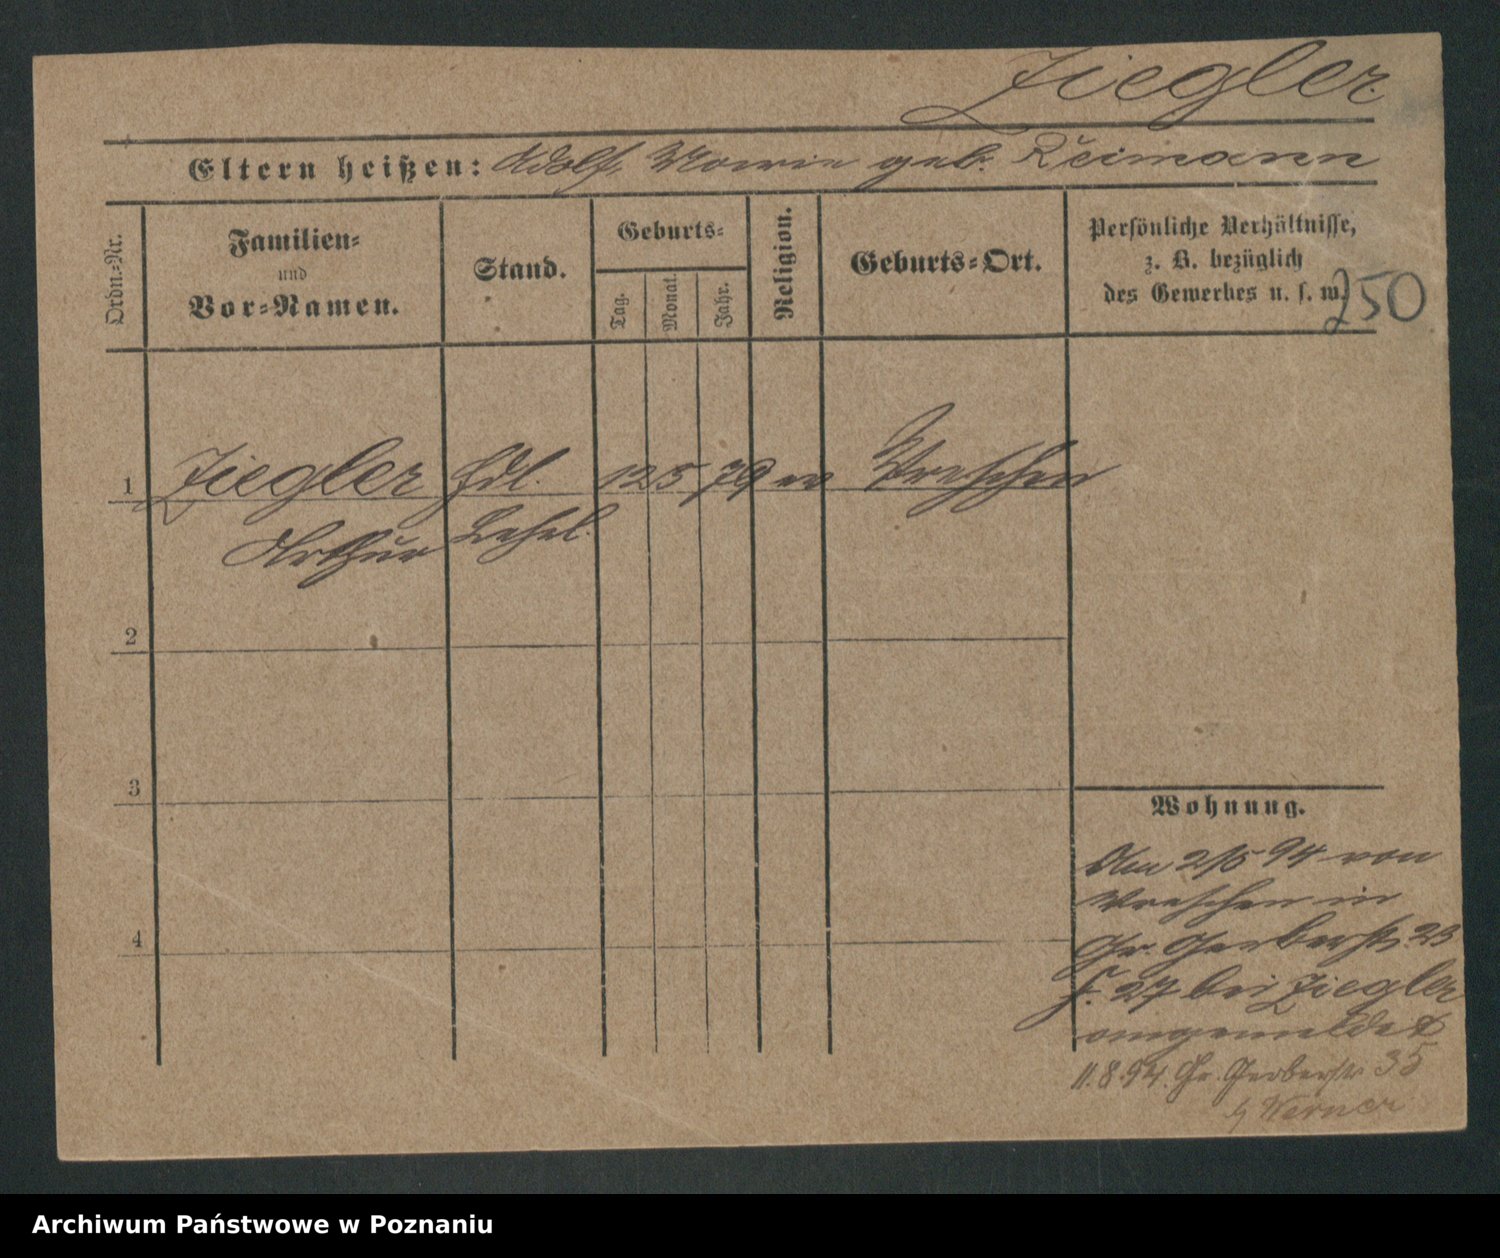 Ziegler.
Eltern heißen: Adolf, Marie geb. Reimann
Ordn.-Nr.
Familien-
und
Vor-Namen.
Stand.
Geburts-
Tag.
Monat.
Jahr.
Religion.
Geburts-Ort.
Persönliche Verhältnisse,
z. B. bezüglich
des Gewerbes u. s. w.
250
1 Ziegler Hdl. 12 5 79 ev Wreschen
Arthur Lehrl.
2
3
4
Wohnung.
Am 2/5 94 von
Wreschen in
Gr. Gerberstr 23
bei Ziegler
angemeldet
11.8.94. Gr. Gerberstr 35
b/ Werner
Archiwum Państwowe w Poznaniu